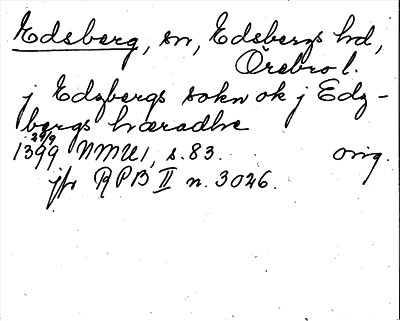 Edsberg, sn, Edsbergs hd,
Örebro l.
j Edzbergs sokn ok j Edz-
bergs hæradhe
29/9
1399 NMU1, s. 83. orig.
jfr RPB II n. 3026.